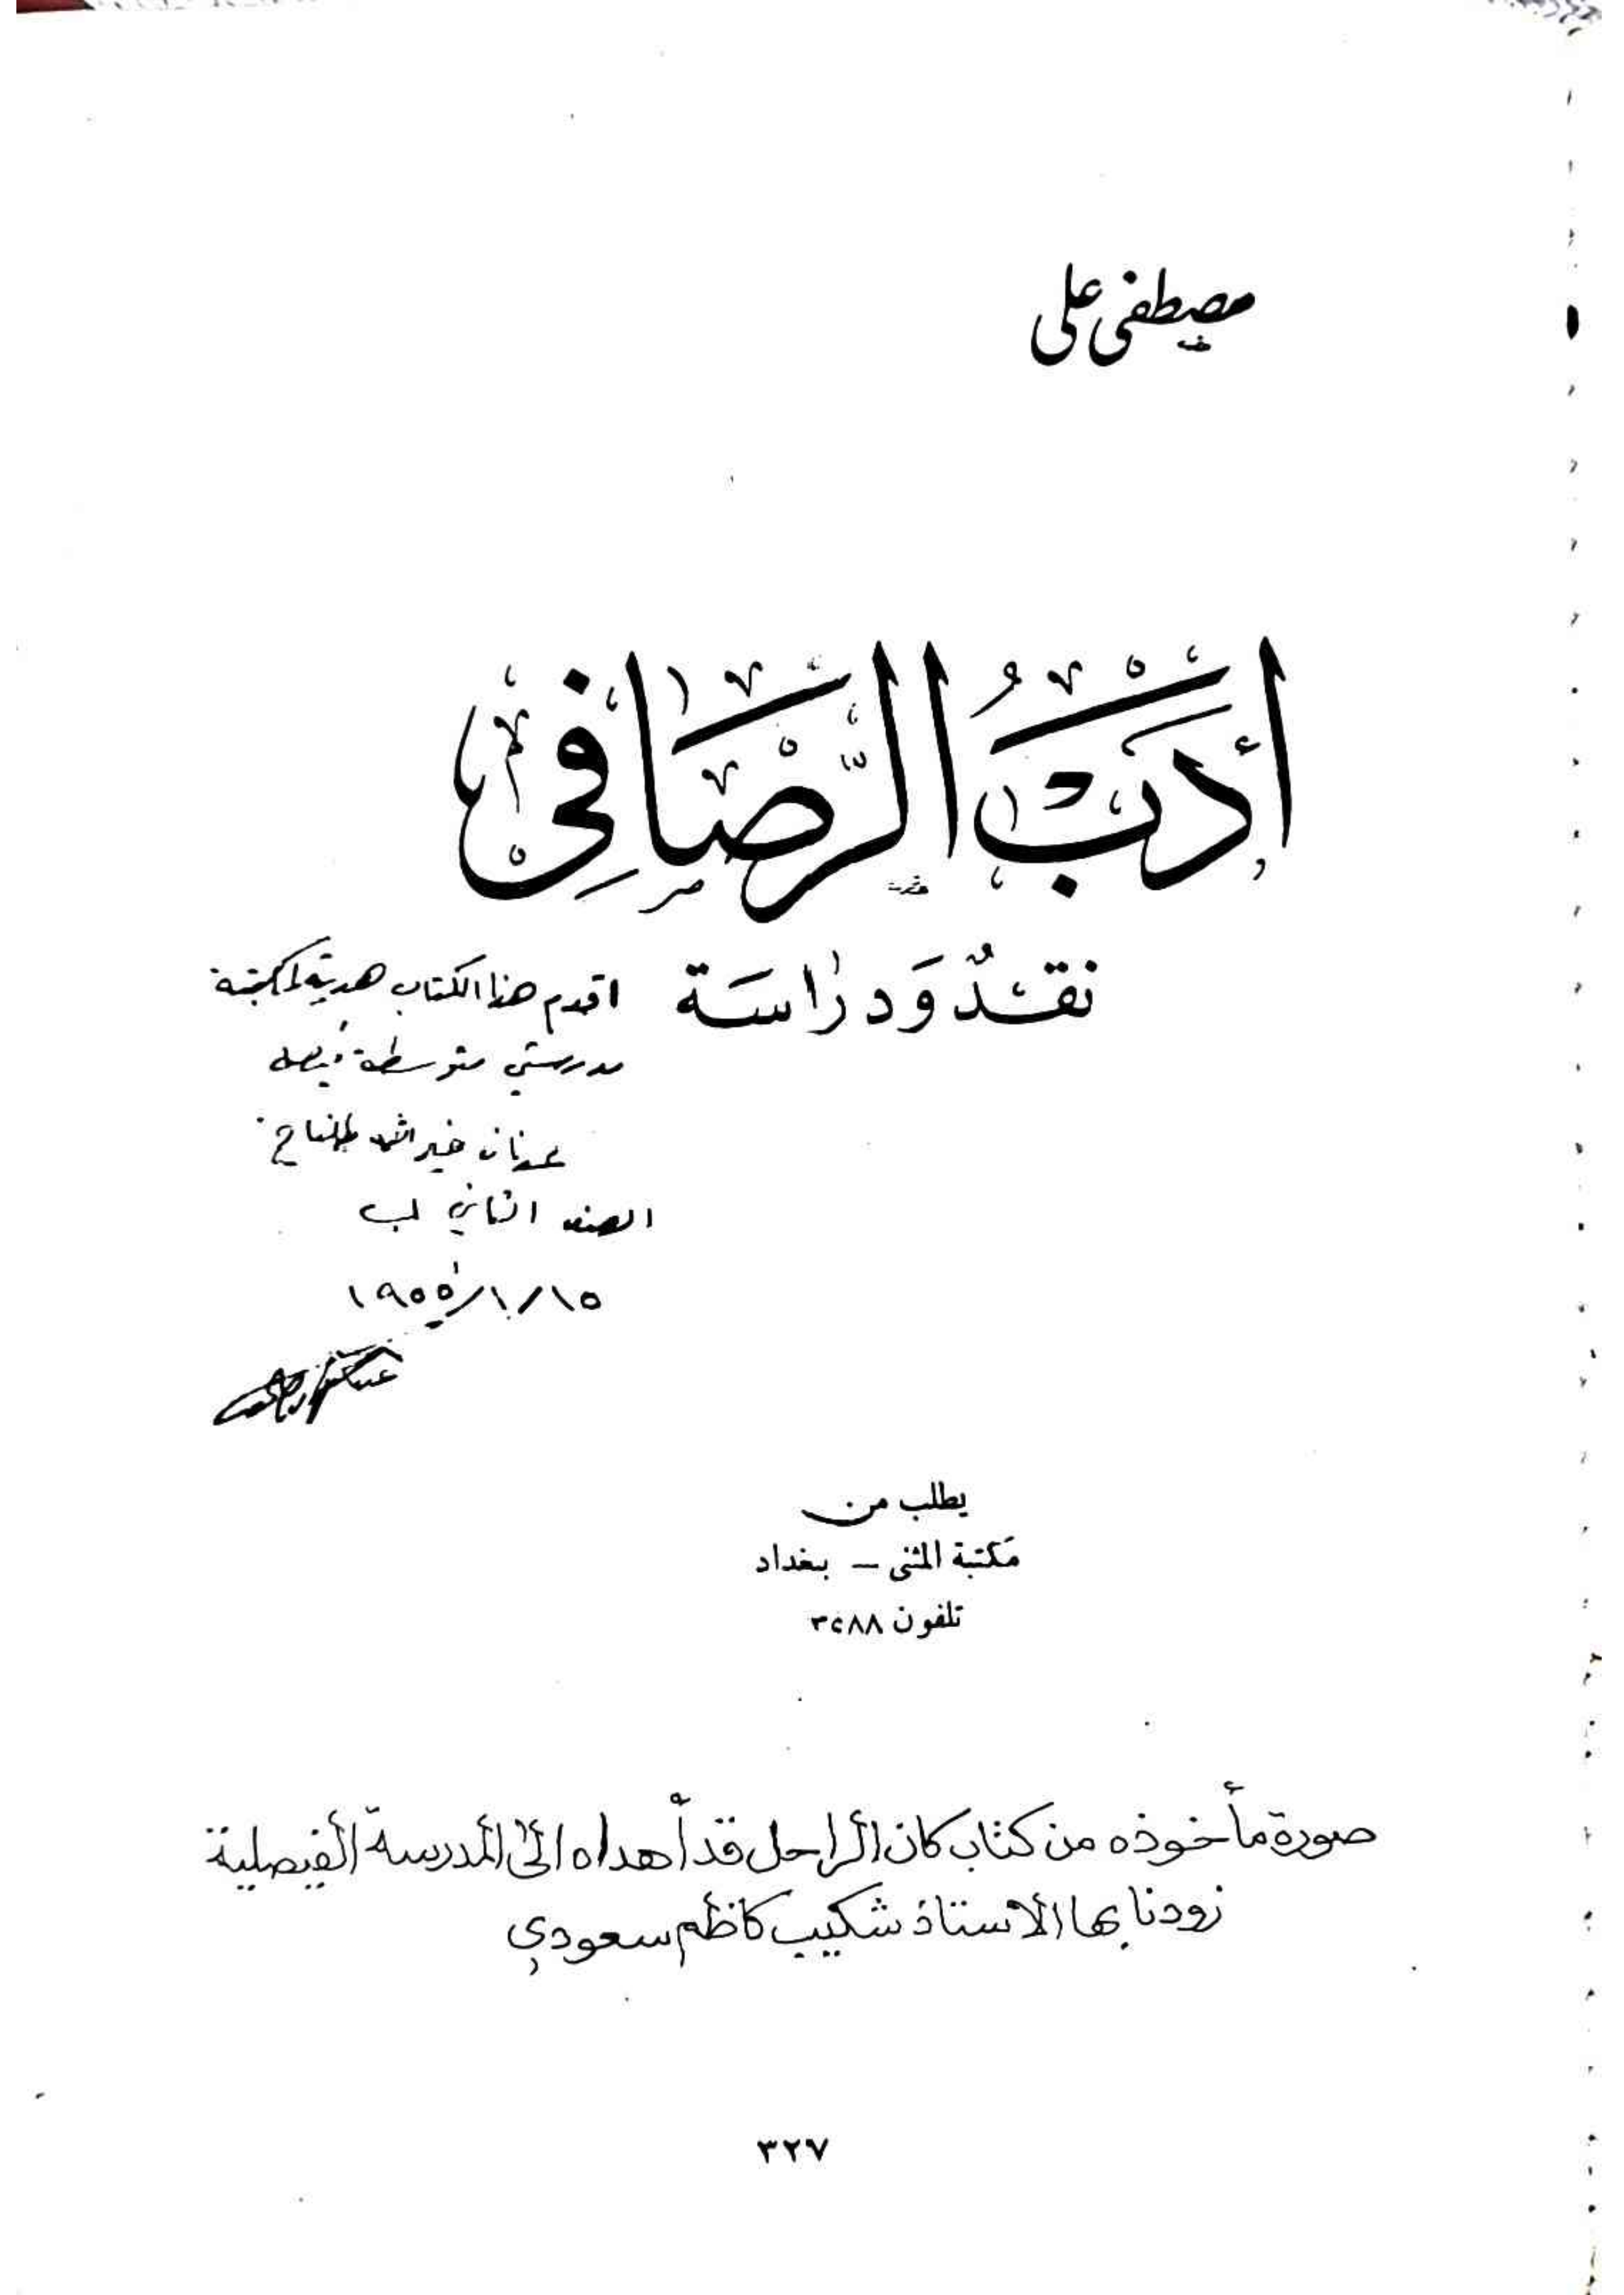 مصطفى علي
أدب الرصافي
نقد ودراسة
اقدم هذا الكتاب هدية لمكتبة
مدرستي متوسطة فيصل
عدنان خير الله طلفاح
الصف الثاني ب
١٥/١٠/١٩٥٥
يطلب من
مكتبة المثنى – بغداد
تلفون ٣٤٨٨
صورة مأخوذه من كتاب كان الراحل قد أهداه الى المدرسة الفيصلية
زودنا بها الاستاذ شكيب كاظم سعودي
٣٢٧